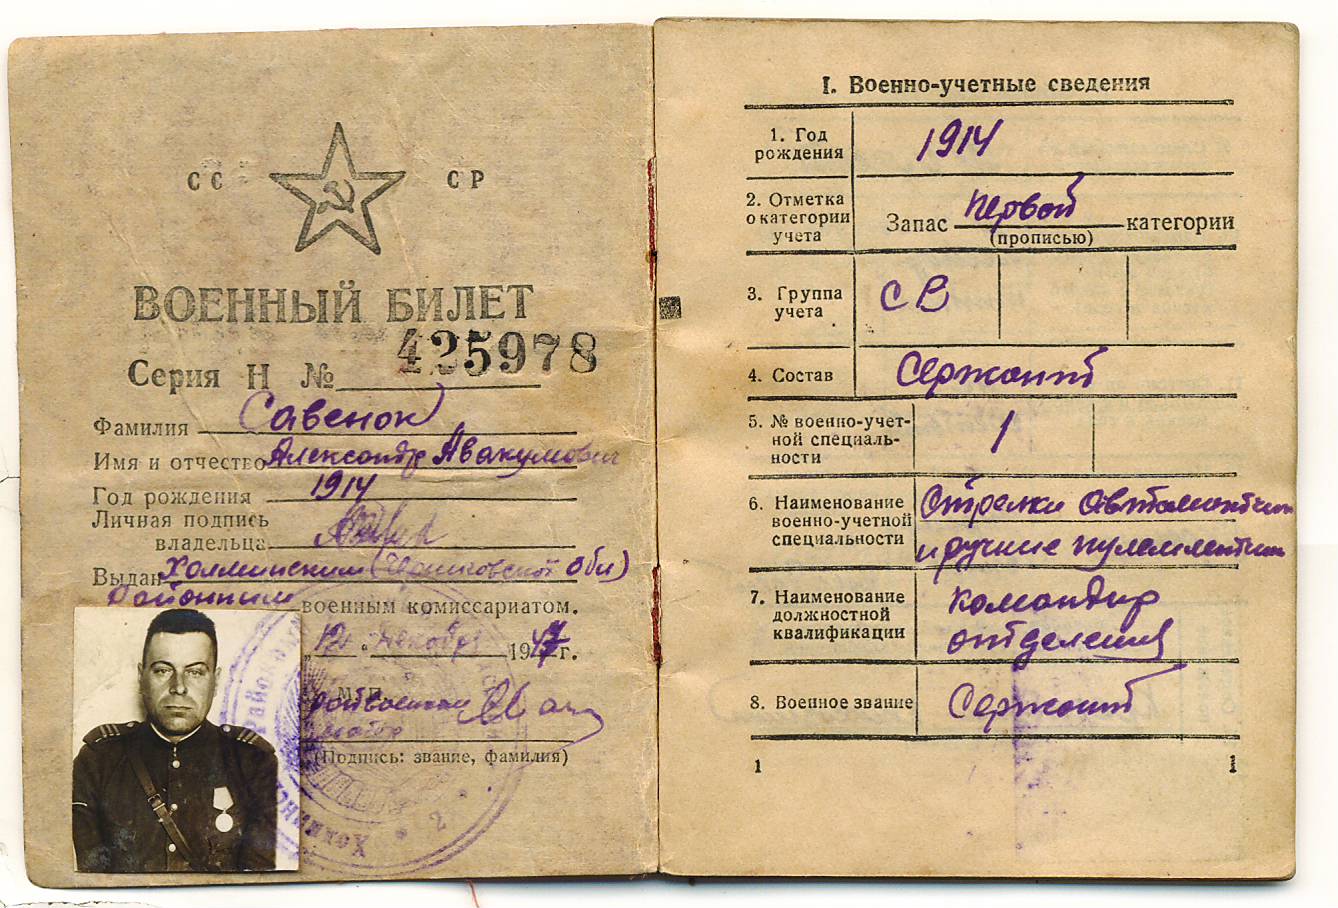 СС СР
ВОЕННЫЙ БИЛЕТ
Серия Н № 425978
Фамилия Савенок
Имя и отчество Александр Авакумович
Год рождения 1914
Личная подпись
владельца
Выдан Холминским (Черниговской Обл)
Районным военным комиссариатом.
"12" декабр 1947 г.
М. П.
Райвоенком
майор
(Подпись: звание, фамилия)
I. Военно-учетные сведения
1. Год
рождения 1914
2. Отметка
о категории
учета Запас первой категории
(прописью)
3. Группа
учета СВ
4. Состав Сержант
5. № военно-учет-
ной специаль-
ности 1
6. Наименование
военно-учетной
специальности Стрелки автоматчики
и ручные пулеметчики
7. Наименование
должностной
квалификации командир
отделения
8. Военное звание Сержант
1 1